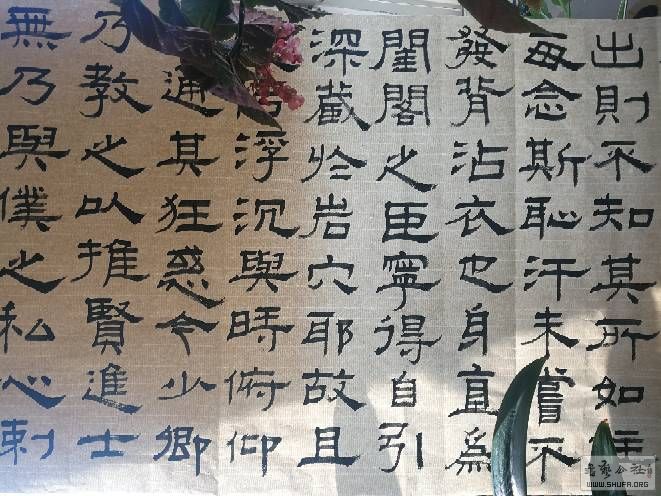 出則不知其所如往
每念斯恥汗未嘗不
發背沾衣也身直為
閨閣之臣寧得自引
深藏於岩穴耶故且
浮沉與時俯仰
通其狂惑今少卿
乃教之以推賢進士
無乃與僕之私心剌
WWW.SHUFA.ORG